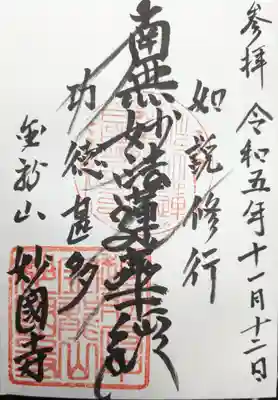 参拝 令和五年十一月十二日
如説修行
南無妙法蓮華経
功徳甚多
金龍山 妙國寺